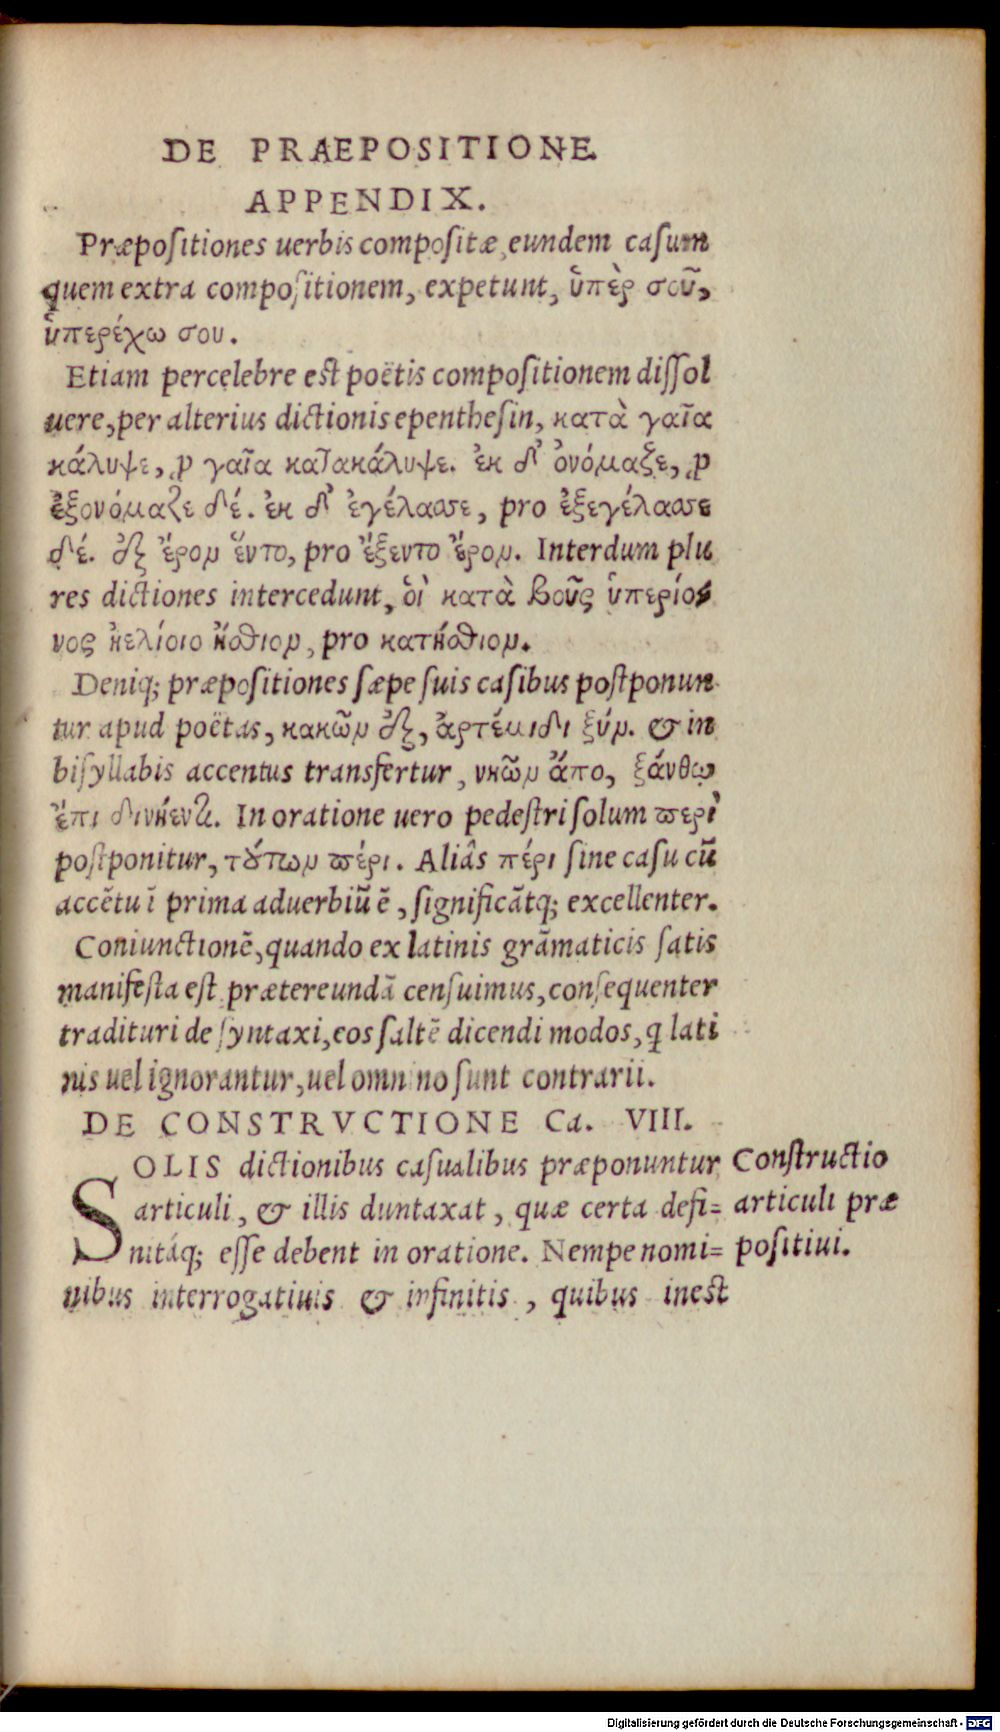 DE PRAEPOSITIONE
APPENDIX.
Præpositiones uerbis compositæ, eundem casum
quem extra compositionem, expetunt, ὑπὲρ σοῦ,
ὑπερέχω σου.
Etiam percelebre est poëtis compositionem dissol
uere, per alterius dictionis epenthesin, κατὰ γαῖα
κάλυψε, ꝓ γαῖα κατακάλυψε. ἐκ δ' ὀνόμαζε, ꝓ
ἐξονόμαζε δέ. ἐκ δ' ἐγέλασσε, pro ἐξεγέλασσε
δέ. ἐξ ἔρον ἕντο, pro ἔξεντο ἔρον. Interdum plu
res dictiones intercedunt, οἱ κατὰ βοῦς ὑπερίο
νος ἠελίοιο ἤσθιον, pro κατήσθιον.
Deniq; præpositiones sæpe suis casibus postponun
tur apud poëtas, κακῶν ἐξ, ἀρτέμιδι ξύν. & in
bisyllabis accentus transfertur, νηῶν ἄπο, ξάνθῳ
ἔπι δινήεντι. In oratione uero pedestri solum περὶ
postponitur, τούτων πέρι. Aliâs πέρι sine casu cũ
accẽtu ĩ prima aduerbiũ ẽ, significãtq; excellenter.
Coniunctionẽ, quando ex latinis grãmaticis satis
manifesta est prætereundã censuimus, consequenter
tradituri de syntaxi, eos saltẽ dicendi modos, ꝗ lati
nis uel ignorantur, uel omnino sunt contrarii.
DE CONSTRVCTIONE Ca. VIII.
SOLIS dictionibus casualibus præponuntur
articuli, & illis duntaxat, quæ certa defi=
nitáq; esse debent in oratione. Nempe nomi=
nibus interrogatiuis & infinitis, quibus inest
Constructio
articuli præ
positiui.
Digitalisierung gefördert durch die Deutsche Forschungsgemeinschaft - DFG